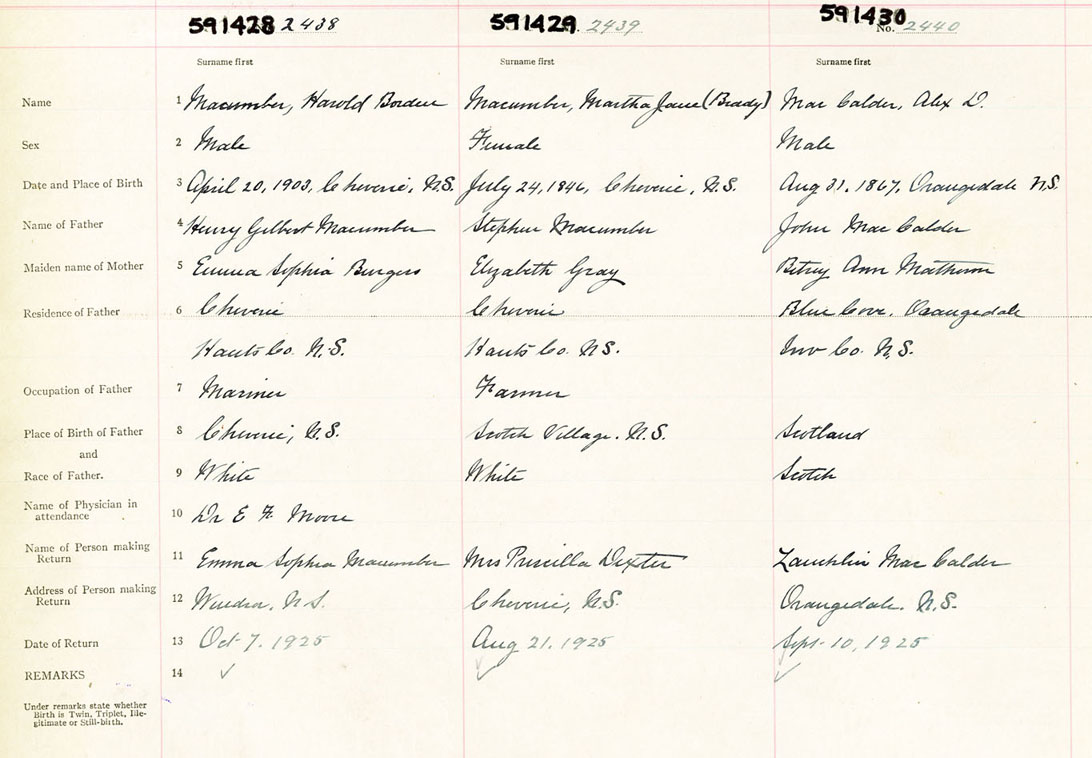 591428 2438 591429. 2439 591430 No. 2440
Surname first Surname first Surname first
Name 1 Macumber, Harold Borden Macumber, Martha Jane (Brady) Mac Calder, Alex D.
Sex 2 Male Female Male
Date and Place of Birth 3 April 20, 1903, Cheverie, N.S. July 24, 1846, Cheverie, N.S. Aug 31, 1867, Orangedale N.S.
Name of Father 4 Henry Gilbert Macumber Stephen Macumber John Mac Calder
Maiden name of Mother 5 Emma Sophia Burgess Elizabeth Gray Betsey Ann Matheson
Residence of Father 6 Cheverie Cheverie Blue Cove, Orangedale
Hants Co. N.S. Hants Co. N.S. Inv Co. N.S.
Occupation of Father 7 Mariner Farmer
Place of Birth of Father 8 Cheverie, N.S. Scotch Village. N.S. Scotland
and
Race of Father. 9 White White Scotch
Name of Physician in
attendance 10 Dr E F Moore
Name of Person making
Return 11 Emma Sophia Macumber Mrs Priscilla Dexter Lauchlin Mac Calder
Address of Person making
Return 12 Windsor, N.S. Cheverie, N.S. Orangedale. N.S.
Date of Return 13 Oct 7. 1925 Aug 21. 1925 Sept. 10, 1925
REMARKS 14 ✓ ✓ ✓
Under remarks state whether
Birth is Twin, Triplet, Ille-
gitimate or Still-birth.